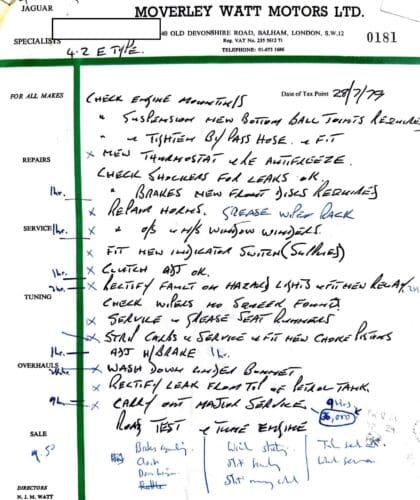 JAGUAR
MOVERLEY WATT MOTORS LTD.
40 OLD DEVONSHIRE ROAD, BALHAM, LONDON, S.W.12
SPECIALISTS
Reg. VAT No. 235 5612 71
0181
TELEPHONE: 01-673 1606
4.2 E TYPE.
FOR ALL MAKES
CHECK ENGINE MOUNTINGS
Date of Tax Point 28/7/79
" SUSPENSION NEW BOTTOM BALL JOINTS REQUIRE
" & TIGHTEN BY PASS HOSE. & FIT
REPAIRS
x NEW THERMOSTAT & RE ANTIFREEZE.
CHECK SHOCKERS FOR LEAKS OK.
1hr. " BRAKES NEW FRONT DISCS REQUIRED
x REPAIR HORNS. GREASE WIPER RACK
SERVICE 1hr. x " O/S & N/S WINDOW WINDERS.
x FIT NEW INDICATOR SWITCH (SUPPLIED)
1hr. x CLUTCH ADJ OK.
TUNING
2hr. x RECTIFY FAULT ON HAZARD LIGHTS & FIT NEW RELAY
CHECK WIPERS NO SCREEN FOUND.
x SERVICE & GREASE SEAT RUNNERS
x STRIP CARBS & SERVICE & FIT NEW CHOKE PISTONS
1hr. ADJ H/BRAKE 1hr.
OVERHAULS
x WASH DOWN UNDER BONNET
RECTIFY LEAK FROM TOP OF PETROL TANK.
9h x CARRY OUT MAJOR SERVICE. 9 Hrs
36,000
ROAD TEST & TUNE ENGINE
SALE
9.50
DIRECTORS
N. J. M. WATT